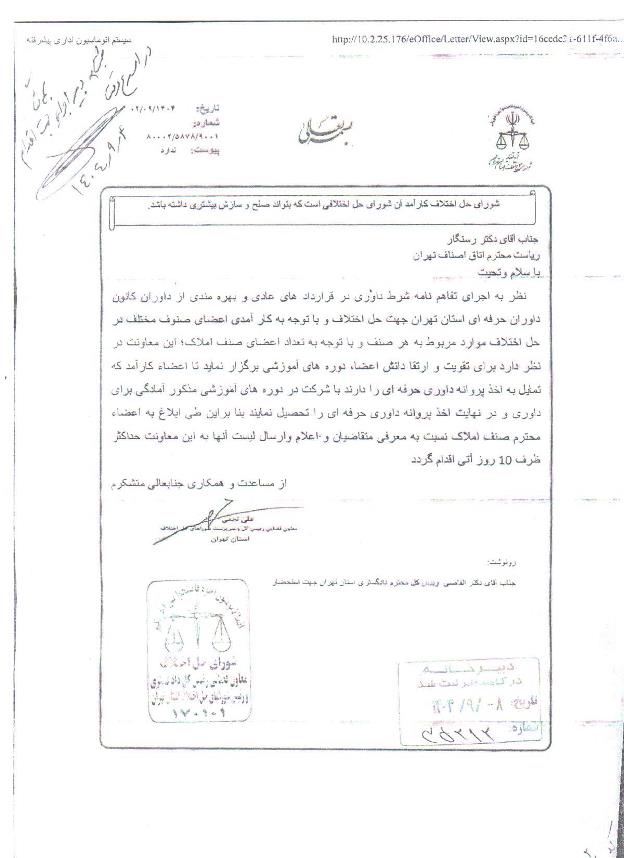 سیستم اتوماسیون اداری پیشرفته
http://10.2.25.176/eOffice/Letter/View.aspx?id=16ccdc3
بسمه تعالی
تاریخ: ۰۲/۰۹/۱۴۰۴
شماره: ۸۰۰۰۲/۵۸۷۸/۹۰۰۱
پیوست: ندارد
شورای حل اختلاف کارآمد آن شورای حل اختلافی است که بتواند صلح و سازش بیشتری داشته باشد.
جناب آقای دکتر رستگار
ریاست محترم اتاق اصناف تهران
با سلام وتحیت
نظر به اجرای تفاهم نامه شرط داوری در قرارداد های عادی و بهره مندی از داوران کانون
داوران حرفه ای استان تهران جهت حل اختلاف و با توجه به کار آمدی اعضای صنوف مختلف در
حل اختلاف موارد مربوط به هر صنف و با توجه به تعداد اعضای صنف املاک؛ این معاونت در
نظر دارد برای تقویت و ارتقا دانش اعضا، دوره های آموزشی برگزار نماید تا اعضاء کارآمد که
تمایل به اخذ پروانه داوری حرفه ای را دارند با شرکت در دوره های آموزشی مذکور آمادگی برای
داوری و در نهایت اخذ پروانه داوری حرفه ای را تحصیل نمایند بنا براین طی ابلاغ به اعضاء
محترم صنف املاک نسبت به معرفی متقاضیان و اعلام وارسال لیست آنها به این معاونت حداکثر
ظرف 10 روز آتی اقدام گردد
از مساعدت و همکاری جنابعالی متشکرم
استان تهران
رونوشت:
جناب آقای دکتر القاصی رییس کل محترم دادگستری استان تهران جهت استحضار
شورای حل اختلاف
معاون قضایی رئیس کل دادگستری
۱۷۰۹۰۹
دبیرخانه
تاریخ: ۱۴۰۴/۹/۰۸
شماره: ۲۵۲۱۲
۱۴۰۴/۹/۲